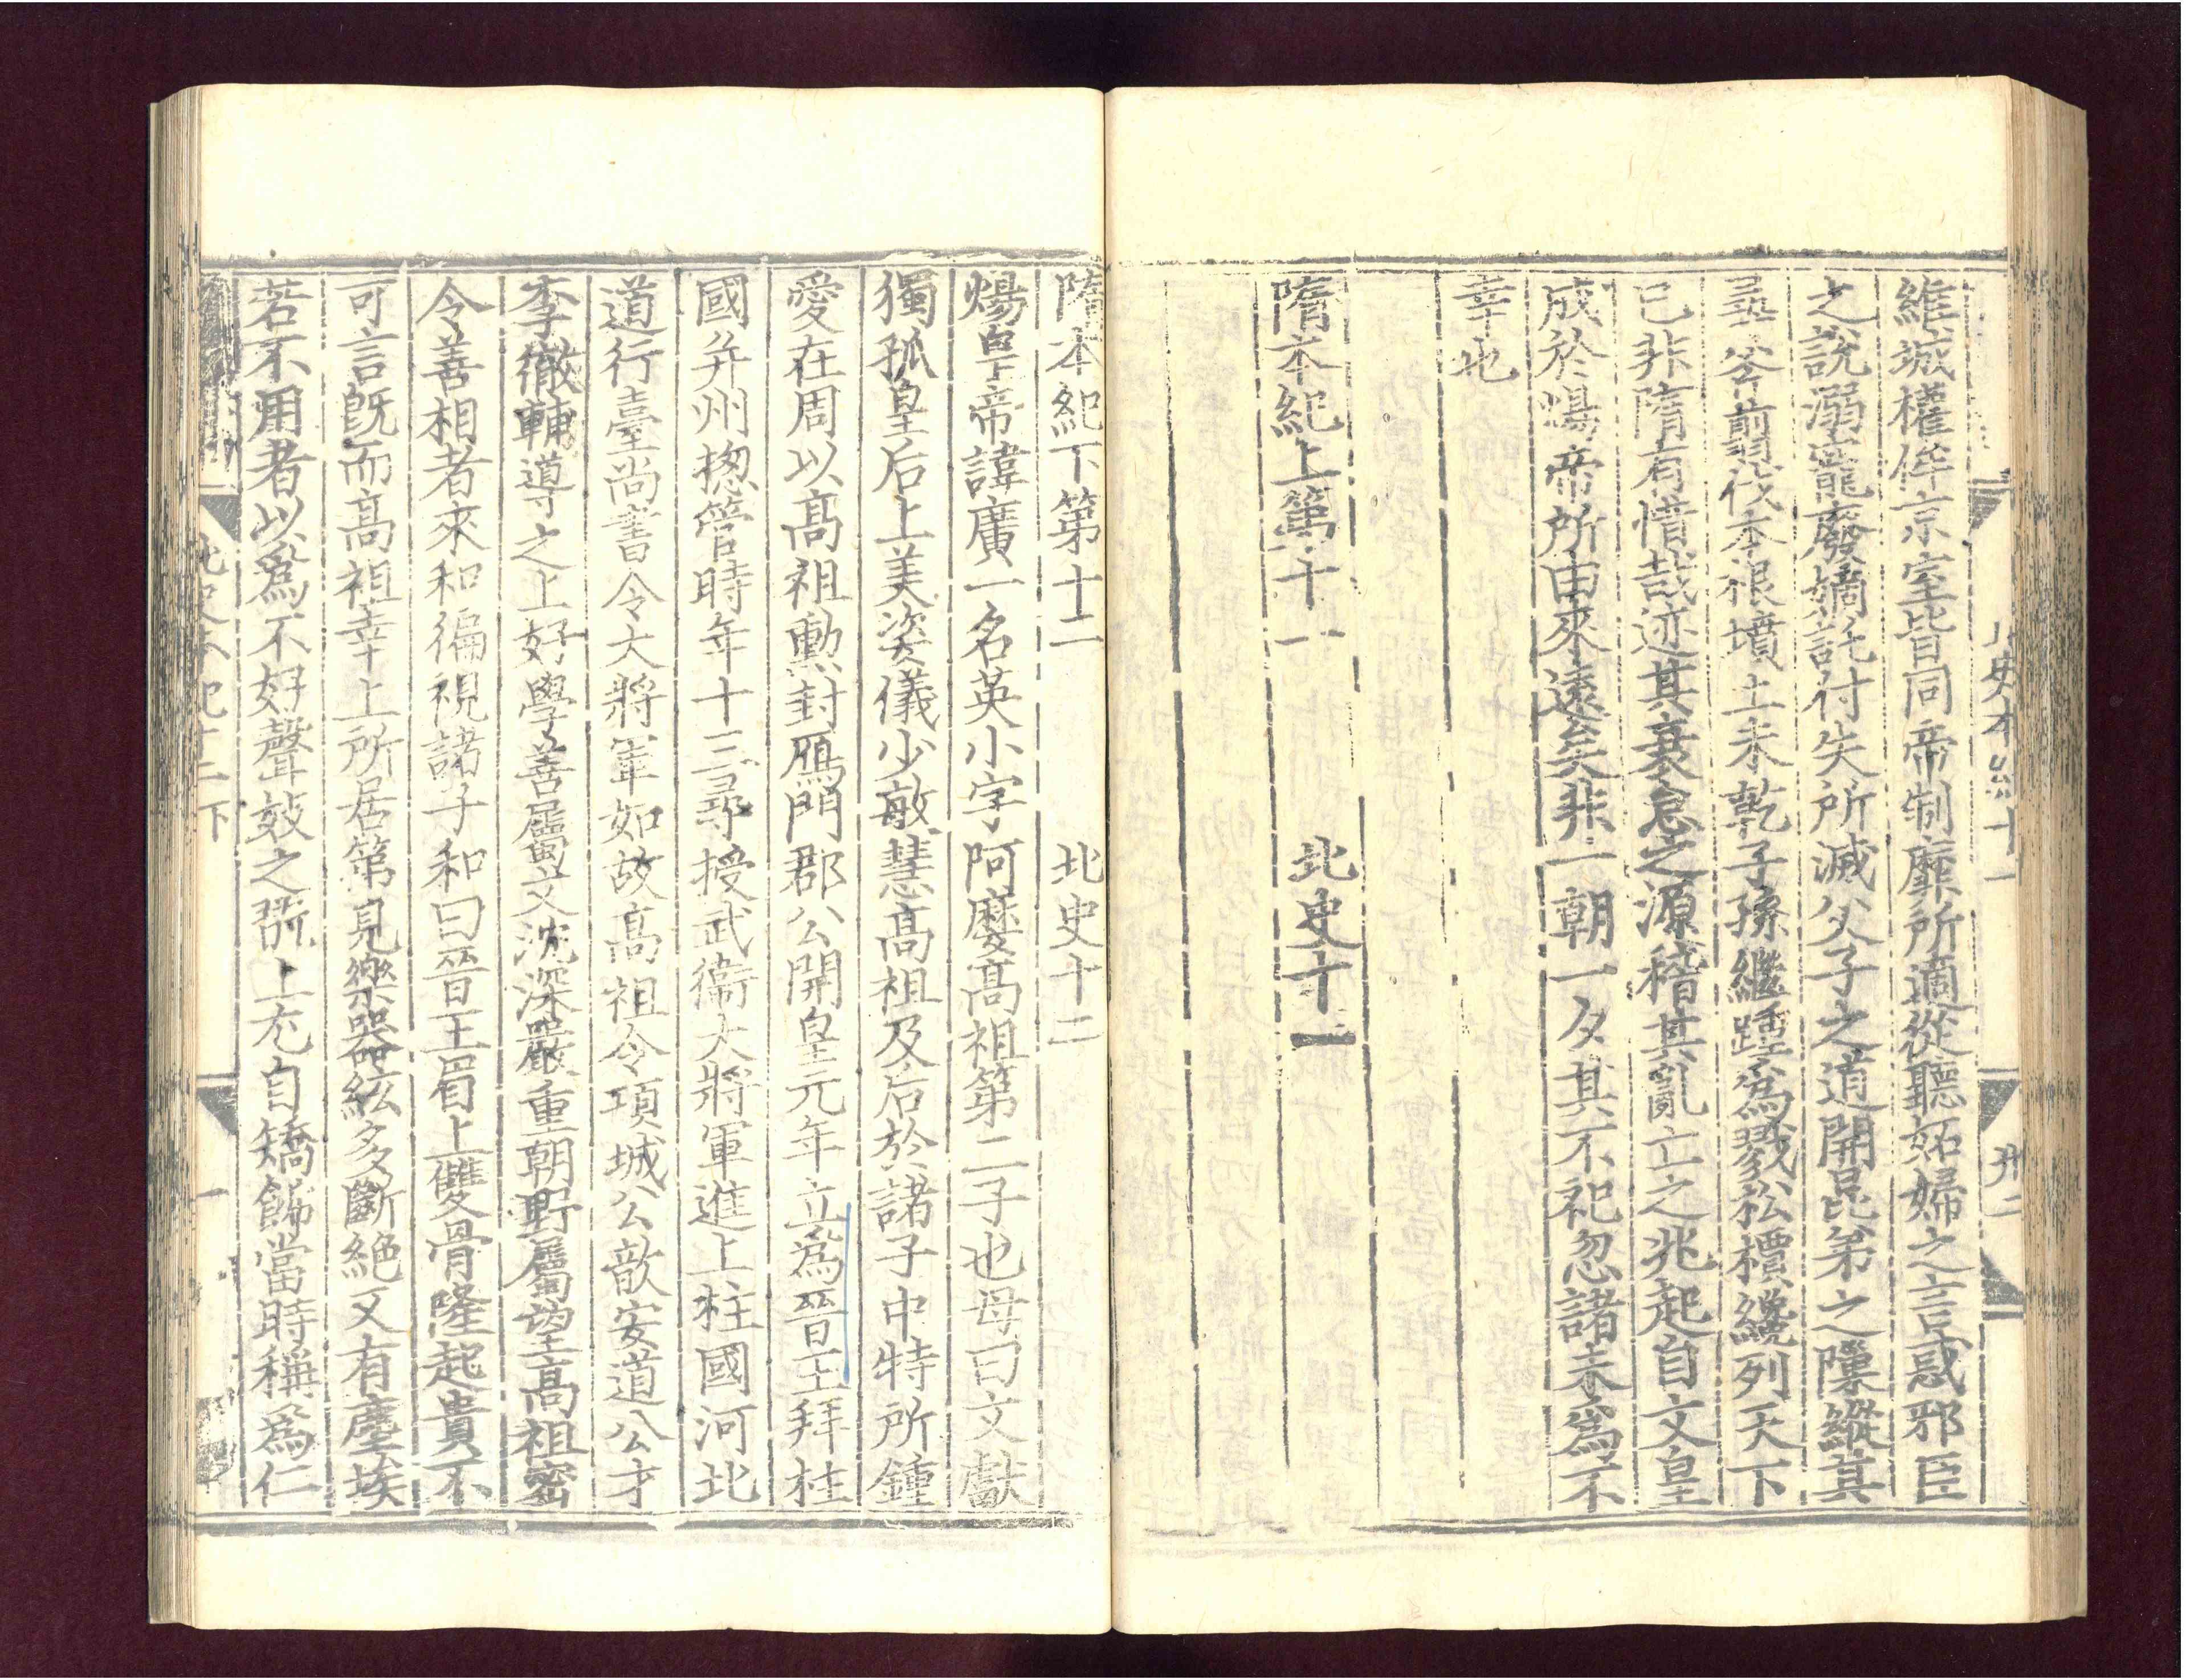 維城權侔京室皆同帝制靡所適從聽妬婦之言惑邪臣
之說溺寵廢嫡託付失所滅父子之道開昆弟之隙縱其
尋斧翦伐本根墳土未乾子孫繼踵爲戮松檟纔列天下
已非隋有惜哉迹其衰怠之源稽其亂亡之兆起自文皇
成於煬帝所由來遠矣非一朝一夕其不祀忽諸未爲不
幸也
隋本紀上第十一 北史十一
隋本紀下第十二 北史十二
煬皇帝諱廣一名英小字阿㦄高祖第二子也母曰文獻
獨孤皇后上美姿儀少敏慧高祖及后於諸子中特所鍾
愛在周以高祖勲封鴈門郡公開皇元年立爲晉王拜柱
國并州揔管時年十三尋授武衞大將軍進上柱國河北
道行臺尚書令大將軍如故高祖令項城公歆安道公才
李徹輔導之上好學善屬文沈深嚴重朝野屬望高祖密
令善相者來和徧視諸子和曰晉王眉上雙骨隆起貴不
可言旣而高祖幸上所居第見樂器絃多斷絶又有塵埃
若不用者以爲不好聲妓之翫上尤自矯飾當時稱爲仁
北史本紀十二下
一